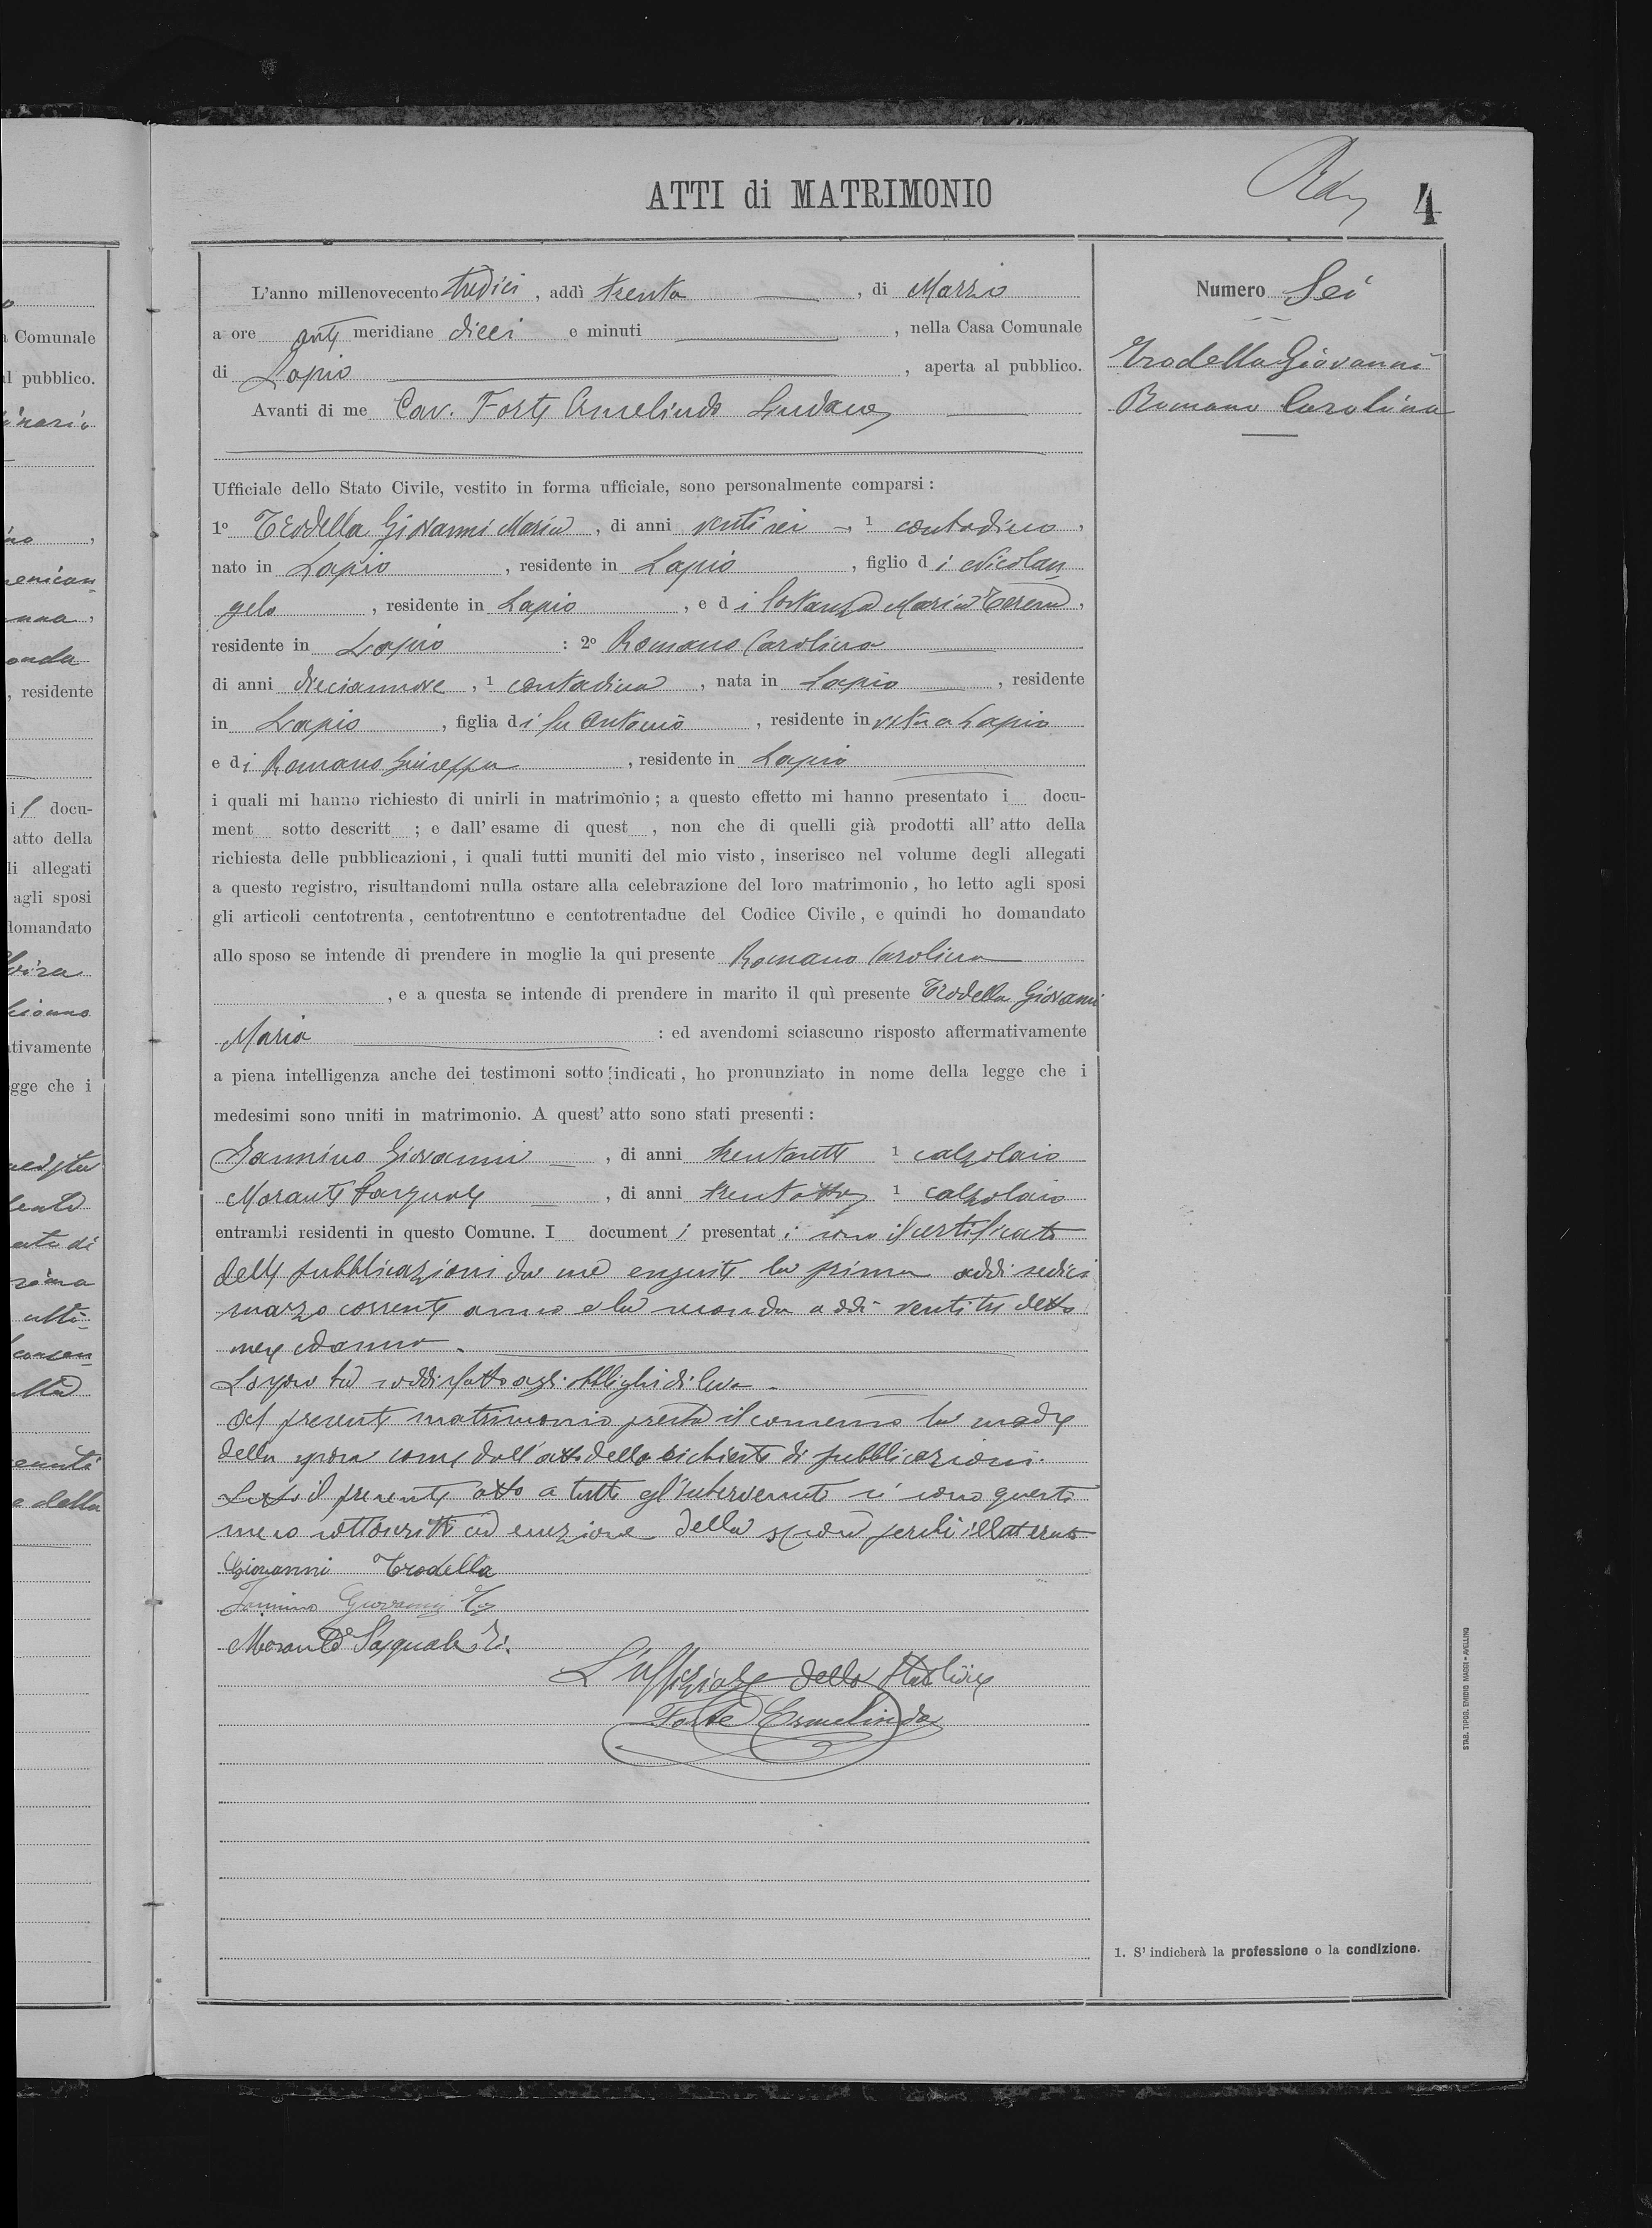 ATTI di MATRIMONIO
4
L'anno millenovecento tredici, addì trenta, di Marzo
a ore anti meridiane dieci e minuti, nella Casa Comunale
di Lapio, aperta al pubblico.
Avanti di me Cav. Forte Ermelindo Sindaco
Ufficiale dello Stato Civile, vestito in forma ufficiale, sono personalmente comparsi:
1º Trodella Giovanni Maria, di anni ventisei, 1 contadino,
nato in Lapio, residente in Lapio, figlio di Nicolan-
gelo, residente in Lapio, e di Costanza Maria Teresa,
residente in Lapio: 2º Romano Carolina
di anni diciannove, 1 contadina, nata in Lapio, residente
in Lapio, figlia di fu Antonio, residente in vita a Lapio
e di Romano Giuseppa, residente in Lapio
i quali mi hanno richiesto di unirli in matrimonio; a questo effetto mi hanno presentato i docu-
ment sotto descritt ; e dall'esame di quest , non che di quelli già prodotti all'atto della
richiesta delle pubblicazioni, i quali tutti muniti del mio visto, inserisco nel volume degli allegati
a questo registro, risultandomi nulla ostare alla celebrazione del loro matrimonio, ho letto agli sposi
gli articoli centotrenta, centotrentuno e centotrentadue del Codice Civile, e quindi ho domandato
allo sposo se intende di prendere in moglie la qui presente Romano Carolina
, e a questa se intende di prendere in marito il quì presente Trodella Giovanni
Maria: ed avendomi sciascuno risposto affermativamente
a piena intelligenza anche dei testimoni sotto indicati, ho pronunziato in nome della legge che i
medesimi sono uniti in matrimonio. A quest'atto sono stati presenti:
Iannino Giovanni, di anni trentasette 1 calzolaio
Morante Pasquale, di anni trentotto 1 calzolaio
entrambi residenti in questo Comune. I documenti presentati sono il certificato
delle pubblicazioni da me eseguite la prima addì sedici
marzo corrente anno e la seconda addì ventitre detto
mese ed anno.
Lo sposo ha soddisfatto agli obblighi di leva.
Al presente matrimonio presta il consenso la madre
della sposa come dall'atto della richiesta di pubblicazioni.
Letto il presente atto a tutti gl'intervenuti si sono questi
meco sottoscritti ad eccezione della sposa perchè illetterata
Giovanni Trodella
Iannino Giovanni
Morante Pasquale
L'uffiziale dello Stato Civile
Forte Ermelindo
Numero Sei
Trodella Giovanni
Romano Carolina
1. S'indicherà la professione o la condizione.
STAB. TIPOG. EMIDIO MAGGI - AVELLINO
o
a Comunale
al pubblico.
enican-
onda
, residente
i 1 docu-
atto della
li allegati
agli sposi
domandato
ativamente
gge che i